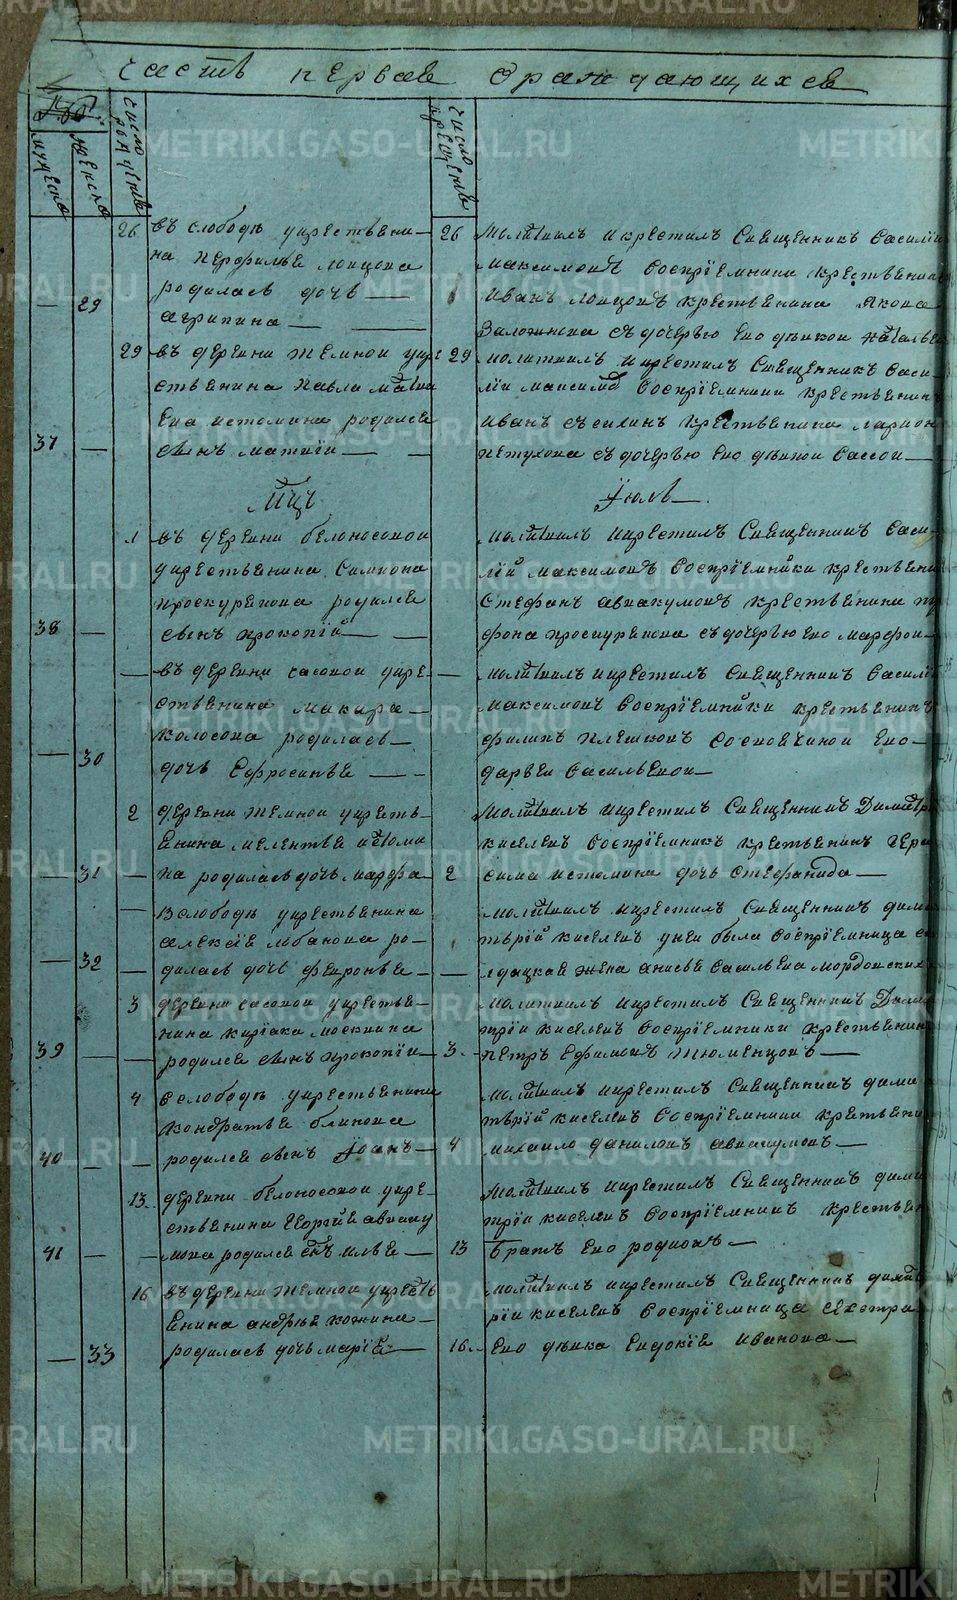 часть первая о раждающихся
мужеска
женска
число рождения
число крещения
26 въ слободѣ укрестьяни-
на Перфилья Лопцова
29 родилась дочь
агрипина
26 молитвилъ икрестилъ Священникъ Василїи
максимовъ Воспрїемники крестьянинъ
иванъ лопцовъ крестьянина Якова
съдочерью Ево дѣвкои наталье
29 въ деревни темнои укре
стьянина павла матве
Ева истомина родился
37 сынъ матвїи
29 молитвилъ икрестилъ Священникъ Васи
лїи максимов Воспрїемники крестьянинъ
иванъ крестьянина лариона
петухова съдочерью Ево дѣвкои
Мцъ Июль
1 въ деревни белоносовои
укрестьянина Симиона
проскурекова родился
38 сынъ прокопїй
молитвилъ икрестилъ Священникъ Васи
лїй максимовъ Воспрїемники крестьяни
Стефанъ авакумовъ крестьянина
фона проскурекова съдочерью Ево марфои
въ деревни сасовои укре-
стьянина макара
колосова родилась
30 дочь Ефросинья
молитвилъ икрестилъ Священникъ Василїи
максимовъ Воспрїемники крестьянинъ
филипъ плешковъ Ево
дарьеи Васильевои
2 деревни темнои укресть-
янина мелентья истоми
31 на родилась дочь марфа 2
молитвилъ икрестилъ Священникъ Димитрїи
киселевъ Воспрїемникъ крестьянинъ гера
сима истомина дочь Стефанида
Вслободѣ укрестьянина
алексѣя лобанова ро-
32 дилась дочь февронья
молитвилъ икрестилъ Священникъ дими
трїй киселевъ унеи была Воспрїемница со
лдацкая жена анисья Васильева мордовских
3 деревни сасовои укрестья-
нина кирїака москвина
39 родился сынъ прокопїи 3
молитвилъ икрестилъ Священникъ Дими
трїи киселевъ Воспрїемники крестьянинъ
петръ Ефимовъ тюменцовъ
4 Вслободѣ укрестьянина
кондратья блинова
40 родился сынъ Їоанъ 4
молитвилъ икрестилъ Священникъ дими
трїй киселевъ Воспрїемники крестьяни
михаило даниловъ авакумовъ
13 деревни белоносовои укре-
стьянина Георгїя авваку
41 мова родился сынъ илья 13
молитвилъ икрестилъ Священникъ дими
трїи киселевъ Воспрїемникъ крестьян
братъ Ево родионъ
16 въ деревни темнои укресть
янина андрея кожина
33 родилась дочь марїя 16
молитвилъ икрестилъ Священникъ димит
рїи киселевъ Воспрїемница
Ево дѣвка Евдокїя иванова
METRIKI.GASO-URAL.RU